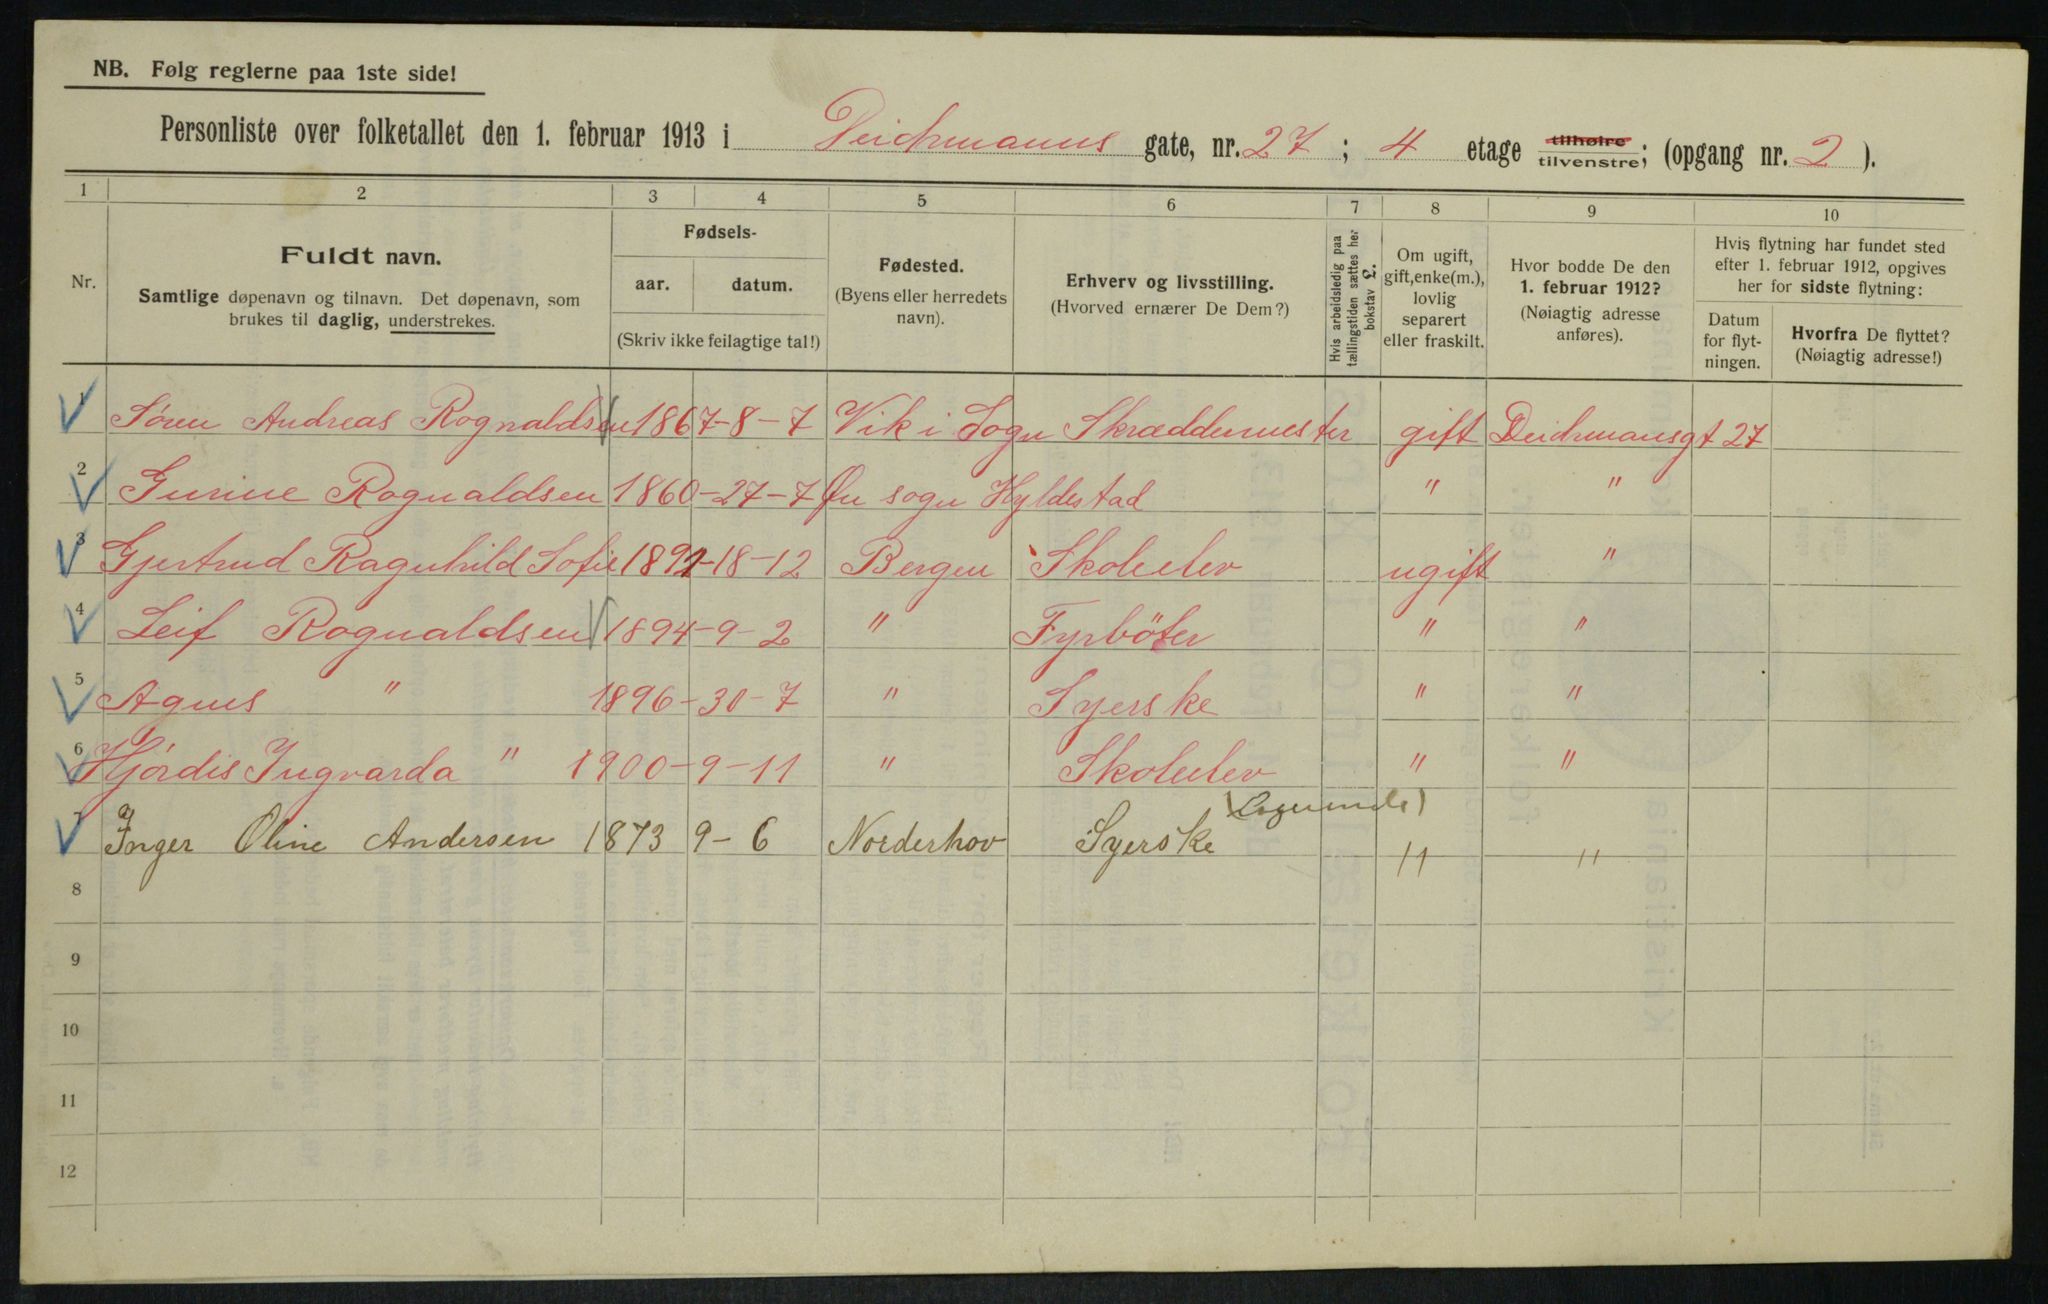 NB. Følg reglerne paa 1ste side!
Personliste over folketallet den 1. februar 1913 i Deichmanns gate, nr. 27 ; 4 etage tilhøire tilvenstre; (opgang nr. 2 ).
1 2 3 4 5 6 7 8 9 10
Nr.
Fuldt navn.
Samtlige døpenavn og tilnavn. Det døpenavn, som
brukes til daglig, understrekes.
Fødsels-
aar. datum.
(Skriv ikke feilagtige tal!)
Fødested.
(Byens eller herredets
navn).
Erhverv og livsstilling.
(Hvorved ernærer De Dem?)
Hvis arbeidsledig paa
tællingstiden sættes her
bokstav L.
Om ugift,
gift, enke(m.),
lovlig
separert
eller fraskilt.
Hvor bodde De den
1. februar 1912?
(Nøiagtig adresse
anføres).
Hvis flytning har fundet sted
efter 1. februar 1912, opgives
her for sidste flytning:
Datum
for flyt-
ningen.
Hvorfra De flyttet?
(Nøiagtig adresse!)
1 Søren Andreas Rognaldsen 1867-8-7 Vik i Sogn Skræddermester gift Deichmansgt 27
2 Gurine Rognaldsen 1860-27-7 Øn sogn Hyldestad " "
3 Gjertrud Ragnhild Sofie 1891-18-12 Bergen Skoleelev ugift "
4 Leif Rognaldsen 1894-9-2 " Fyrböter " "
5 Agnes " 1896-30-7 " Syerske " "
6 Hjördis Ingvarda " 1900-9-11 " Skoleelev " "
(Logerende)
7 Inger Oline Andersen 1873 9-6 Norderhov Syerske " "
8
9
10
11
12